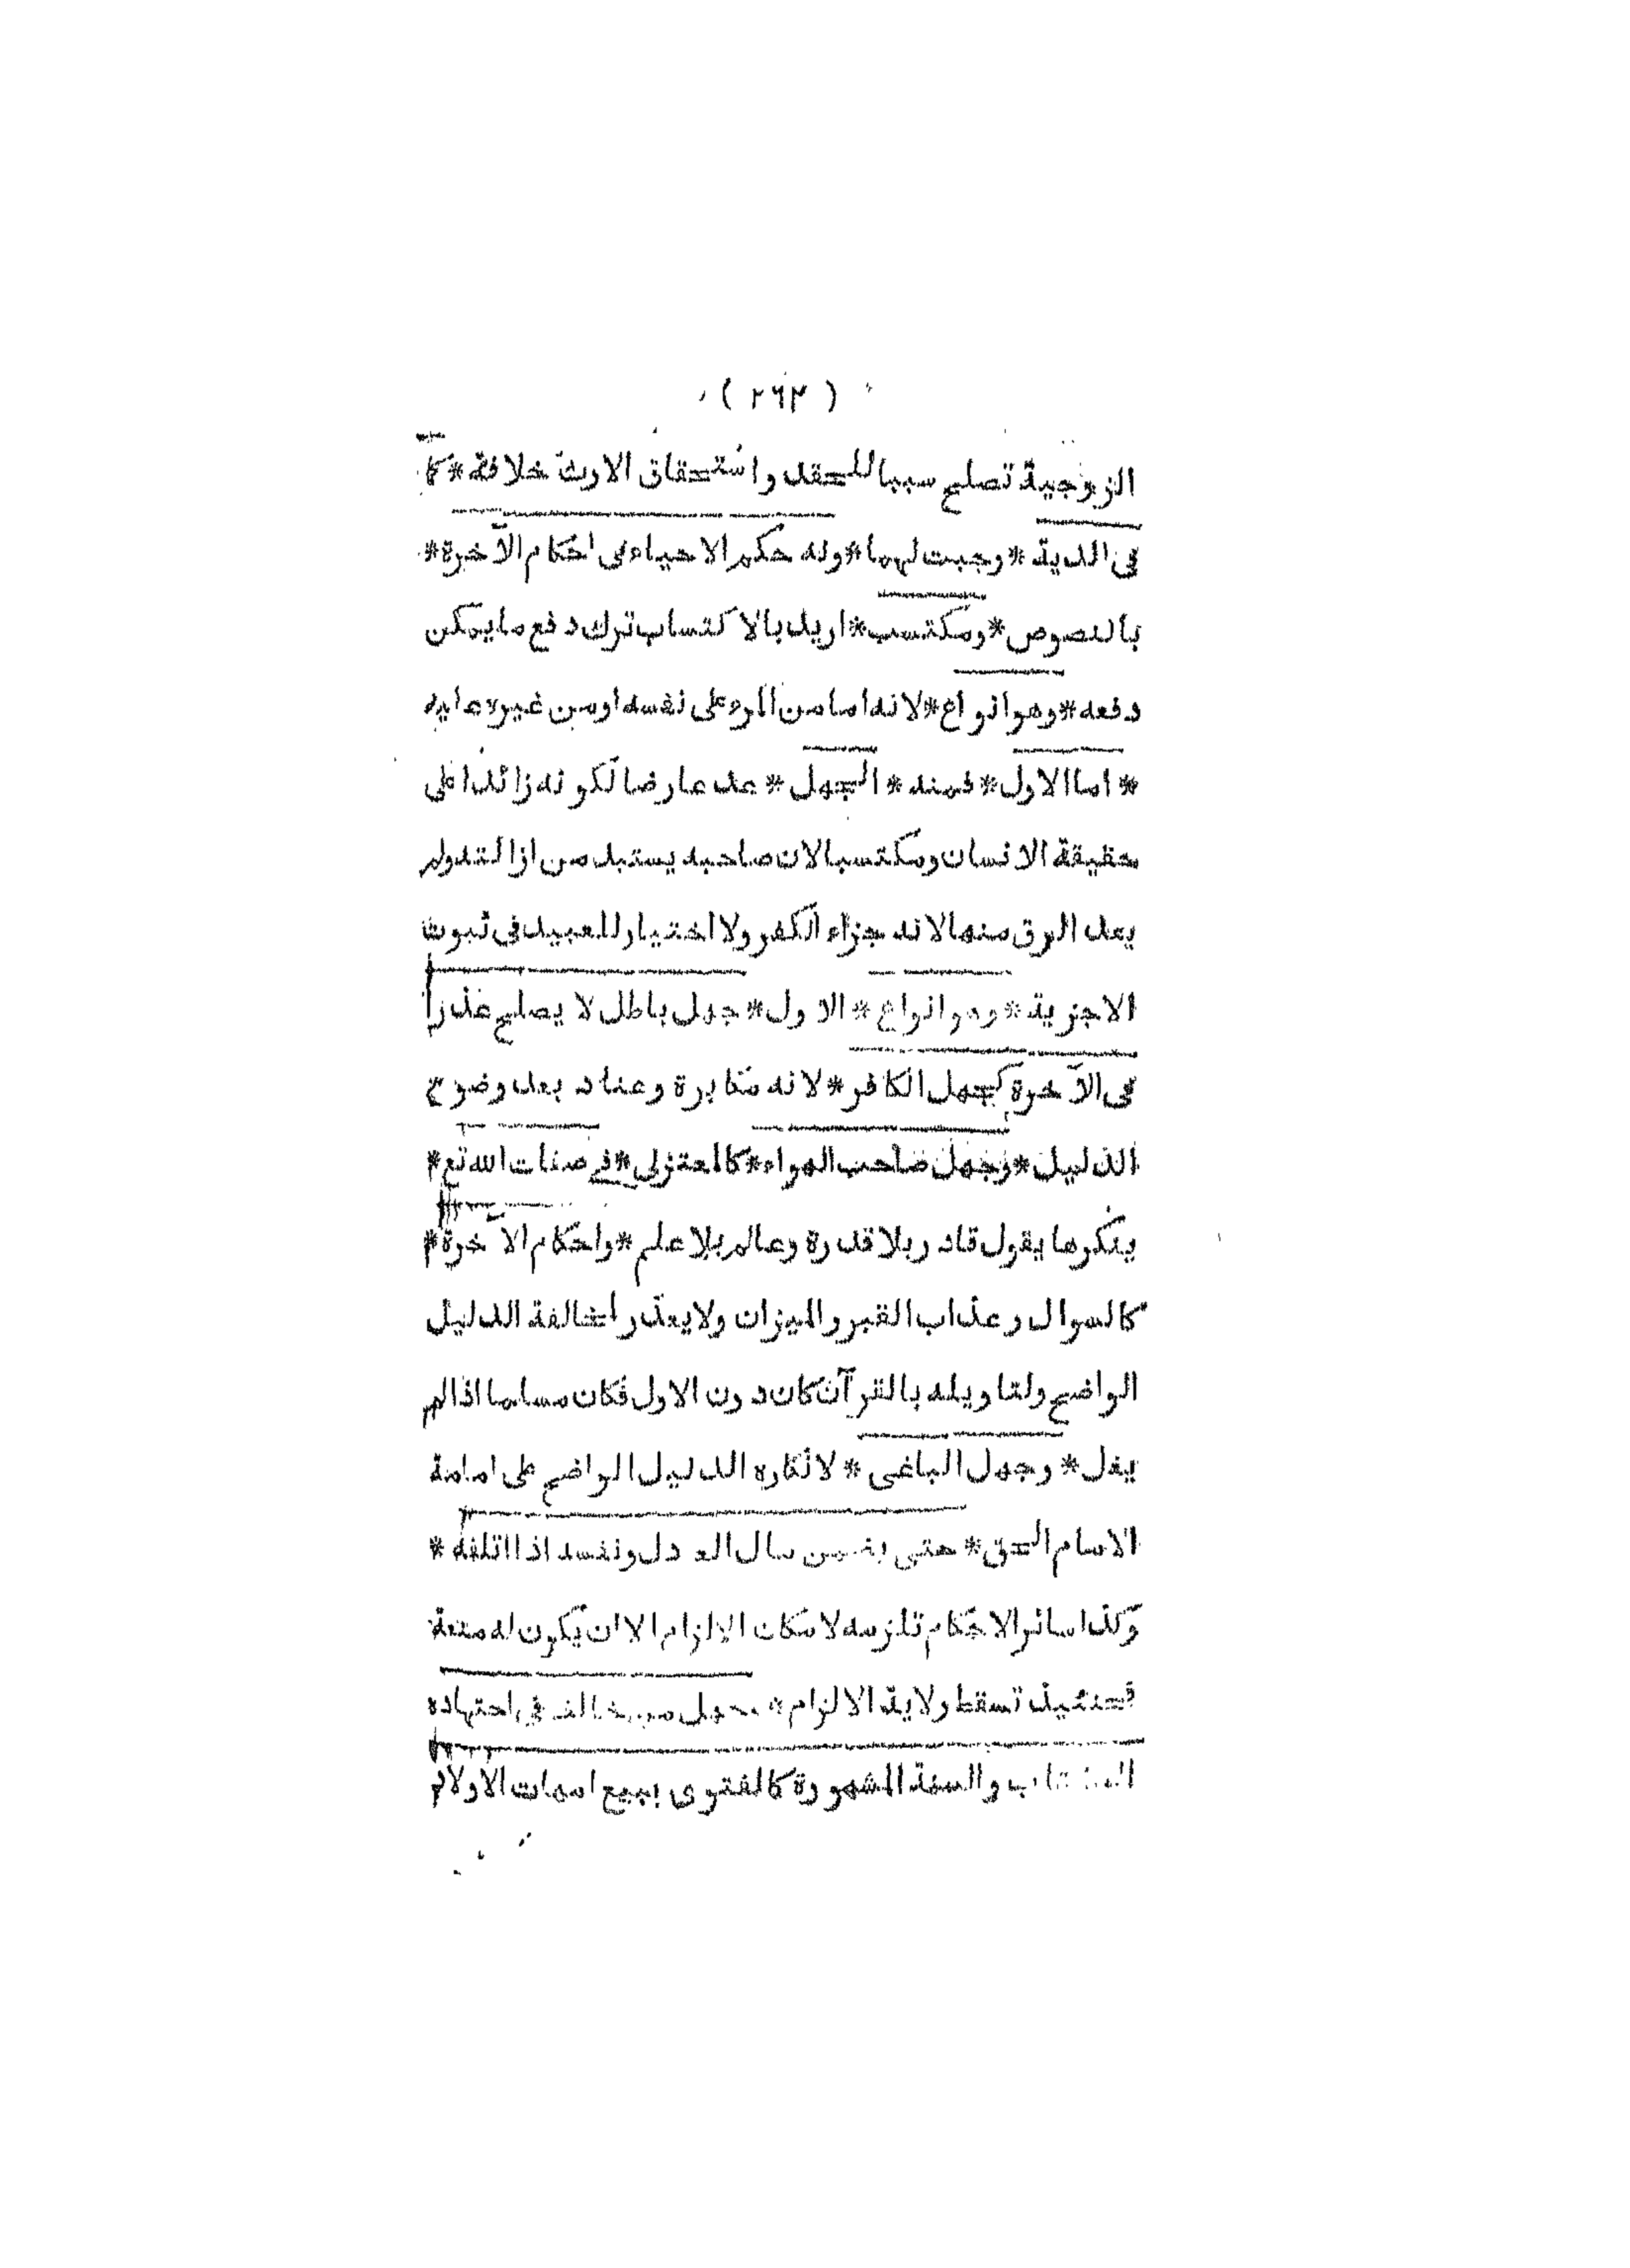 ( ٢٦٣ )
الزوجية تصلح سببا للحقد واستحقاق الارث خلافة * كما
فى الدية * وجبت لهما * وله حكم الاحياء فى احكام الآخرة *
بالنصوص * ومكتسب * اريد بالاكتساب ترك دفع ما يمكن
دفعه * وهو انواع * لانه اما من المرء على نفسه او من غيره عليه
* اما الاول * فمنه * الجهل * عد عارضا لكونه زائدا على
حقيقة الانسان ومكتسبا لان صاحبه يستبد من ازالته ولم
يعد الرق منها لانه جزاء الكفر ولا اختيار للعبيد فى ثبوت
الاجزية * وهو انواع * الاول * جهل باطل لا يصلح عذرا
فى الآخرة كجهل الكافر * لانه مكابرة وعناد بعد وضوح
الدليل * وجهل صاحب الهواء * كالمعتزلى * فى صفات الله تع *
ينكرها يقول قادر بلا قدرة وعالم بلا علم * واحكام الآخرة *
كالسوال وعذاب القبر والميزان ولا يعذر لمخالفة الدليل
الواضح ولتاويله بالقرآن كان دون الاول فكان مسلما اذا لم
يغل * وجهل الباغى * لانكاره الدليل الواضح على امامة
الامام الحق * حتى يضمن مال العدل ونفسه اذا اتلفه *
وكذا سائر الاحكام تلزمه لامكان الالزام الا ان يكون له منعة
فحينئيذ تسقط ولاية الالزام * جهل من خالف فى اجتهاده
الكتاب والسنة المشهورة كالفتوى ببيع امهات الاولاد